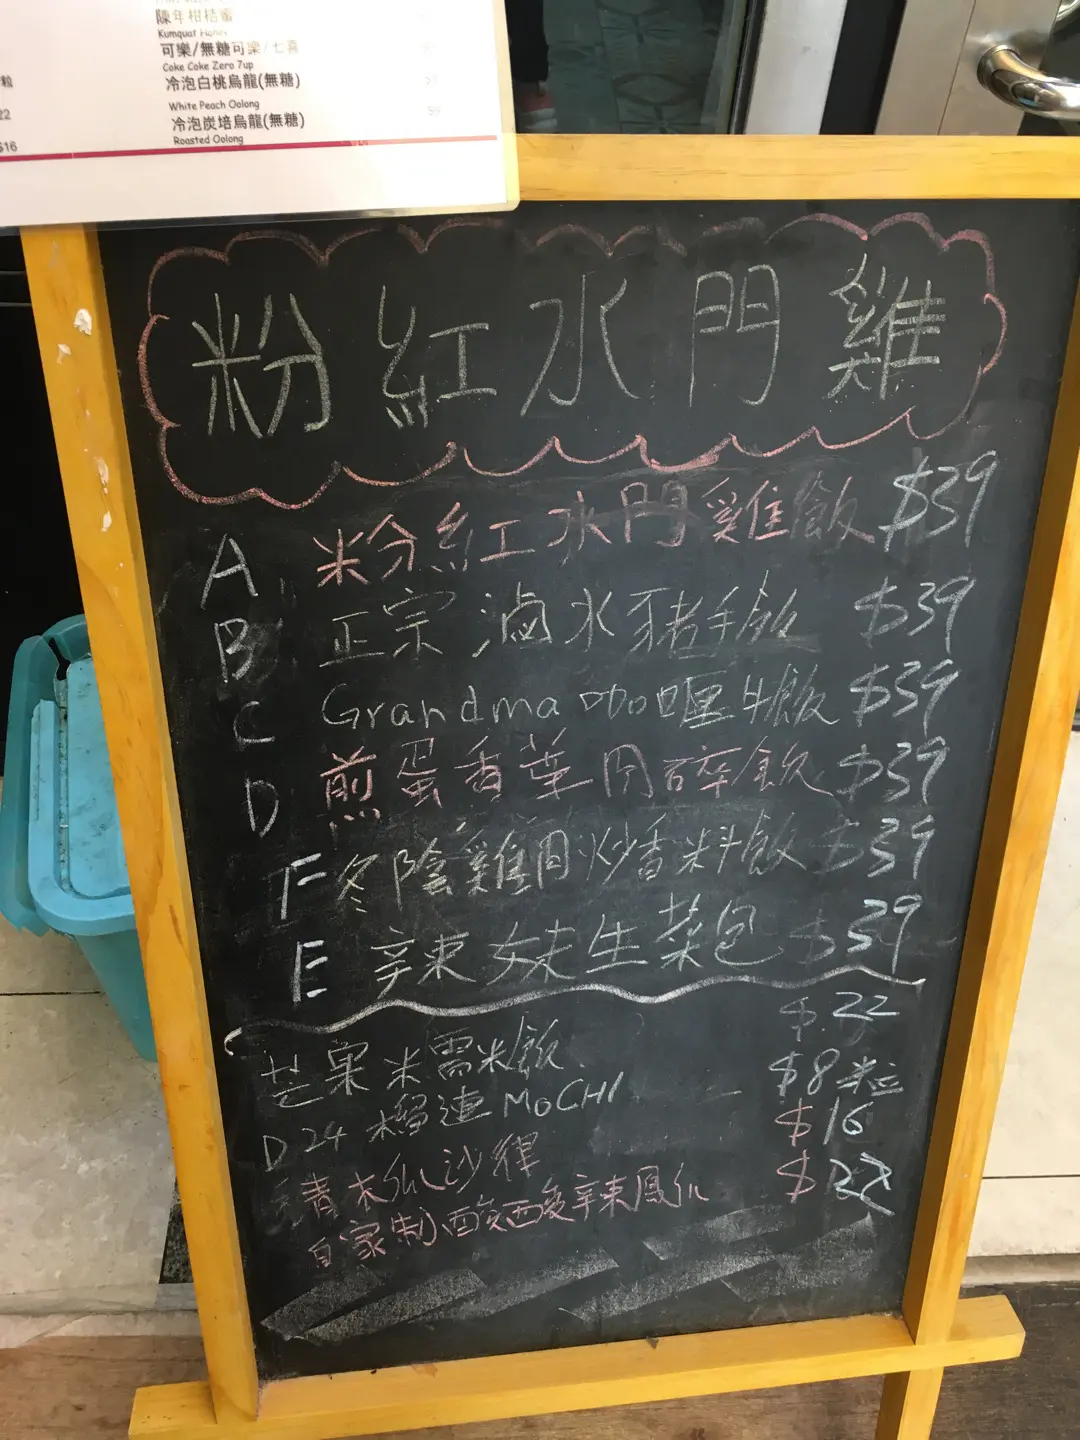 陳年柑桔蜜
Kumquat Honey
可樂/無糖可樂/七喜
Coke Coke Zero 7up
冷泡白桃烏龍(無糖)
White Peach Oolong
冷泡炭培烏龍(無糖)
Roasted Oolong
粒
22
$16
粉紅水門雞
A 粉紅水門雞飯 $39
B 正宗滷水豬手飯 $39
C Grandma咖喱牛飯 $39
D 煎蛋香葉肉碎飯 $39
F 冬陰雞肉炒香料飯 $39
E 辣妹生菜包 $39
芒果米需米飯 $22
D24 榴連MOCHI $8粒
青木瓜沙律 $16
自家制酸酸辣鳳爪 $22